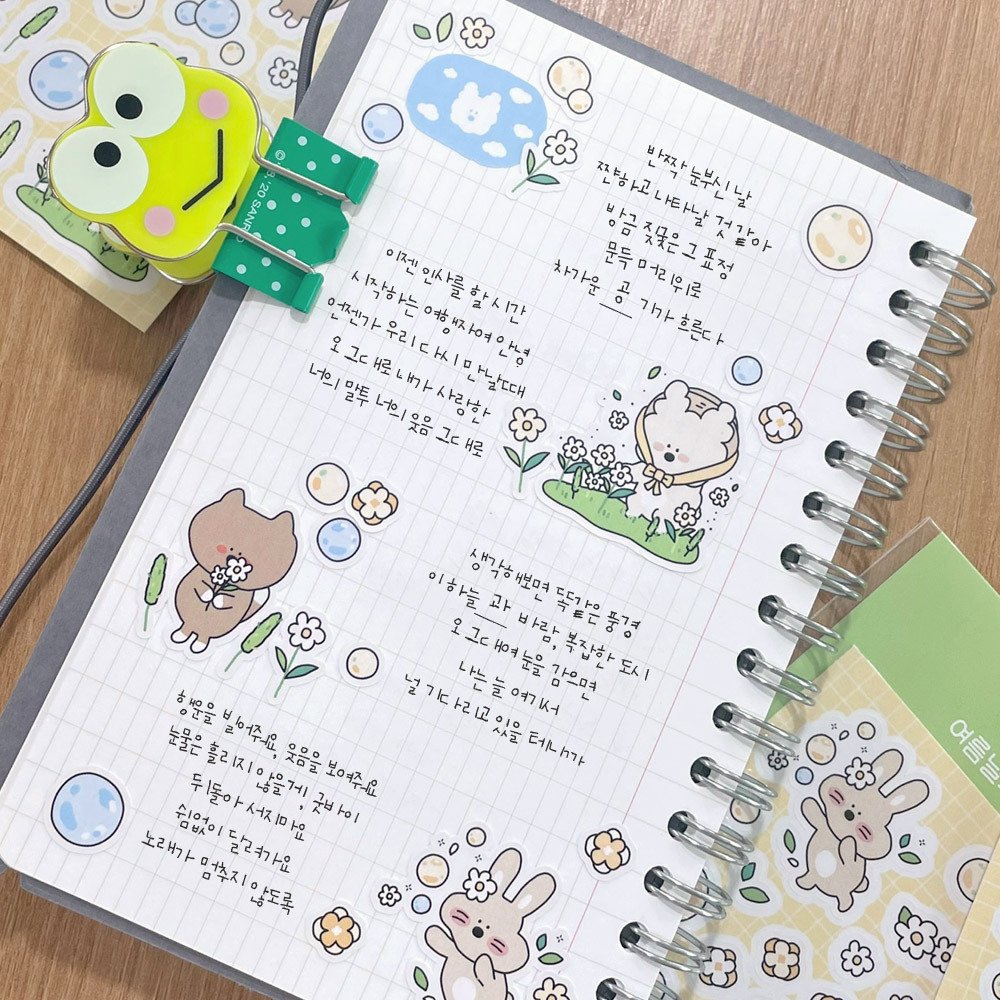 반짝 눈부신 날
짠하고 나타날 것 같아
방금 짓궂은 그 표정
문득 머리위로
차가운 공기가 흐른다
이젠 인사를 할 시간
시작하는 여행자여 안녕
언젠가 우리 다시 만날 때
오 그대로 내가 사랑한
너의 말투 너의 웃음 그대로
생각해보면 똑같은 풍경
이 하늘 과 바람, 복잡한 도시
오 그대여 눈을 감으면
나는 늘 여기서
널 기다리고 있을 테니까
행운을 빌어줘요, 웃음을 보여줘요
눈물은 흘리지 않을게, 굿바이
뒤돌아 서지마요
쉼없이 달려가요
노래가 멈추지 않도록
'20 SANRIO
여름날